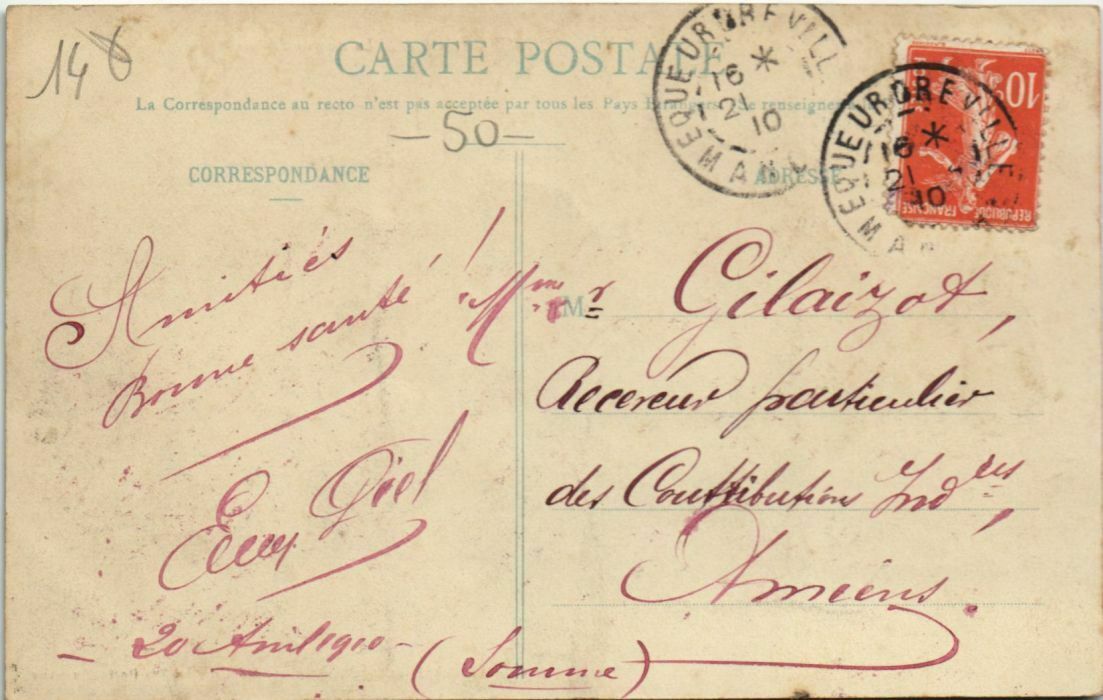 148
CARTE POSTALE
La Correspondance au recto n'est pas acceptée par tous les Pays Etrangers. Se renseigner
-50-
CORRESPONDANCE
ADRESSE
EQUEURDREVILL
16 *
21
10
MAN
EQUEURDREVILLE
16 *
21
10
MAN
10c
REPUBLIQUE FRANÇAISE
Amitiés
Bonne santé!
20 Avril 1910 -
Mme M r Gilaizot,
Receveur particulier
des Contributions Indes,
Amiens.
(Somme)